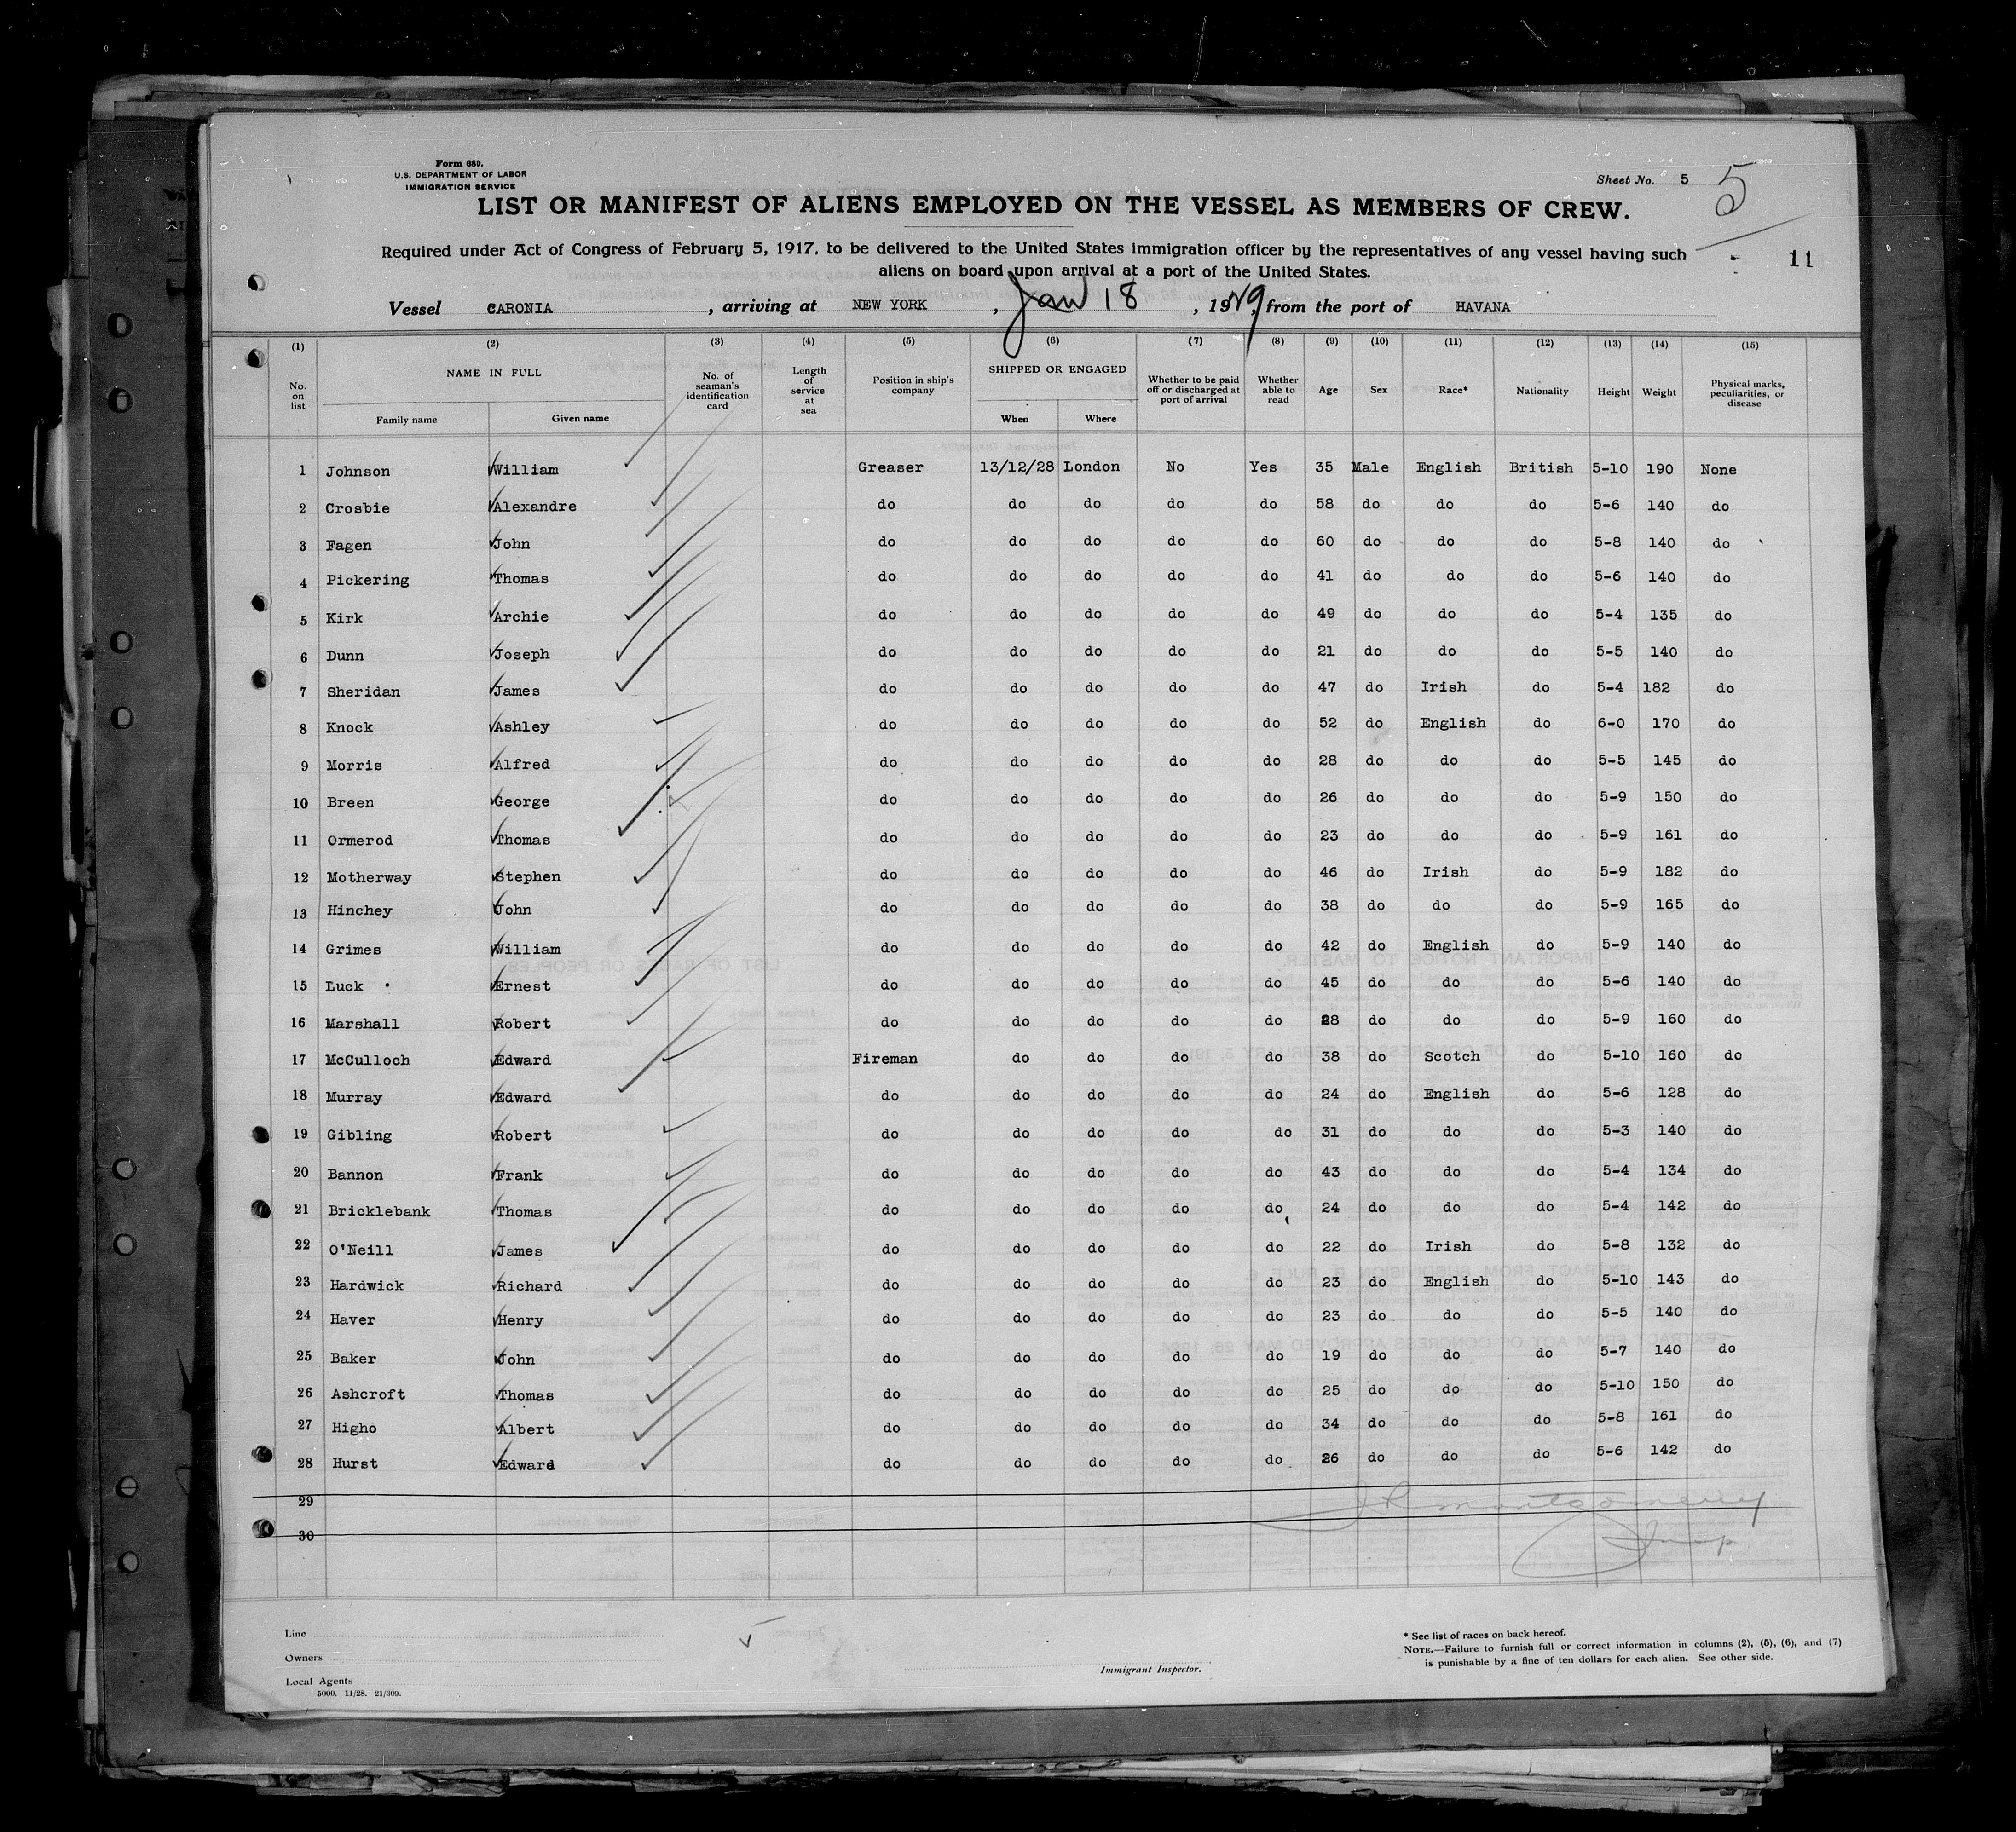 Form 680.
U.S. DEPARTMENT OF LABOR
IMMIGRATION SERVICE
Sheet No. 5
5
LIST OR MANIFEST OF ALIENS EMPLOYED ON THE VESSEL AS MEMBERS OF CREW.
Required under Act of Congress of February 5, 1917, to be delivered to the United States immigration officer by the representatives of any vessel having such
aliens on board upon arrival at a port of the United States.
11
Vessel CARONIA, arriving at NEW YORK, Jan 18, 1929, from the port of HAVANA
(1) (2) (3) (4) (5) (6) (7) (8) (9) (10) (11) (12) (13) (14) (15)
No. on list NAME IN FULL Family name Given name No. of seaman's identification card Length of service at sea Position in ship's company SHIPPED OR ENGAGED When Where Whether to be paid off or discharged at port of arrival Whether able to read Age Sex Race* Nationality Height Weight Physical marks, peculiarities, or disease
1 Johnson William Greaser 13/12/28 London No Yes 35 Male English British 5-10 190 None
2 Crosbie Alexandre do do do do do 58 do do do 5-6 140 do
3 Fagen John do do do do do 60 do do do 5-8 140 do
4 Pickering Thomas do do do do do 41 do do do 5-6 140 do
5 Kirk Archie do do do do do 49 do do do 5-4 135 do
6 Dunn Joseph do do do do do 21 do do do 5-5 140 do
7 Sheridan James do do do do do 47 do Irish do 5-4 182 do
8 Knock Ashley do do do do do 52 do English do 6-0 170 do
9 Morris Alfred do do do do do 28 do do do 5-5 145 do
10 Breen George do do do do do 26 do do do 5-9 150 do
11 Ormerod Thomas do do do do do 23 do do do 5-9 161 do
12 Motherway Stephen do do do do do 46 do Irish do 5-9 182 do
13 Hinchey John do do do do do 38 do do do 5-9 165 do
14 Grimes William do do do do do 42 do English do 5-9 140 do
15 Luck Ernest do do do do do 45 do do do 5-6 140 do
16 Marshall Robert do do do do do 28 do do do 5-9 160 do
17 McCulloch Edward Fireman do do do do 38 do Scotch do 5-10 160 do
18 Murray Edward do do do do do 24 do English do 5-6 128 do
19 Gibling Robert do do do do do 31 do do do 5-3 140 do
20 Bannon Frank do do do do do 43 do do do 5-4 134 do
21 Bricklebank Thomas do do do do do 24 do do do 5-4 142 do
22 O'Neill James do do do do do 22 do Irish do 5-8 132 do
23 Hardwick Richard do do do do do 23 do English do 5-10 143 do
24 Haver Henry do do do do do 23 do do do 5-5 140 do
25 Baker John do do do do do 19 do do do 5-7 140 do
26 Ashcroft Thomas do do do do do 25 do do do 5-10 150 do
27 Higho Albert do do do do do 34 do do do 5-8 161 do
28 Hurst Edward do do do do do 26 do do do 5-6 142 do
29
30
Montgomery
Line
Owners
Local Agents
5000. 11/28. 21/309.
Immigrant Inspector.
* See list of races on back hereof.
NOTE.—Failure to furnish full or correct information in columns (2), (5), (6), and (7)
is punishable by a fine of ten dollars for each alien. See other side.